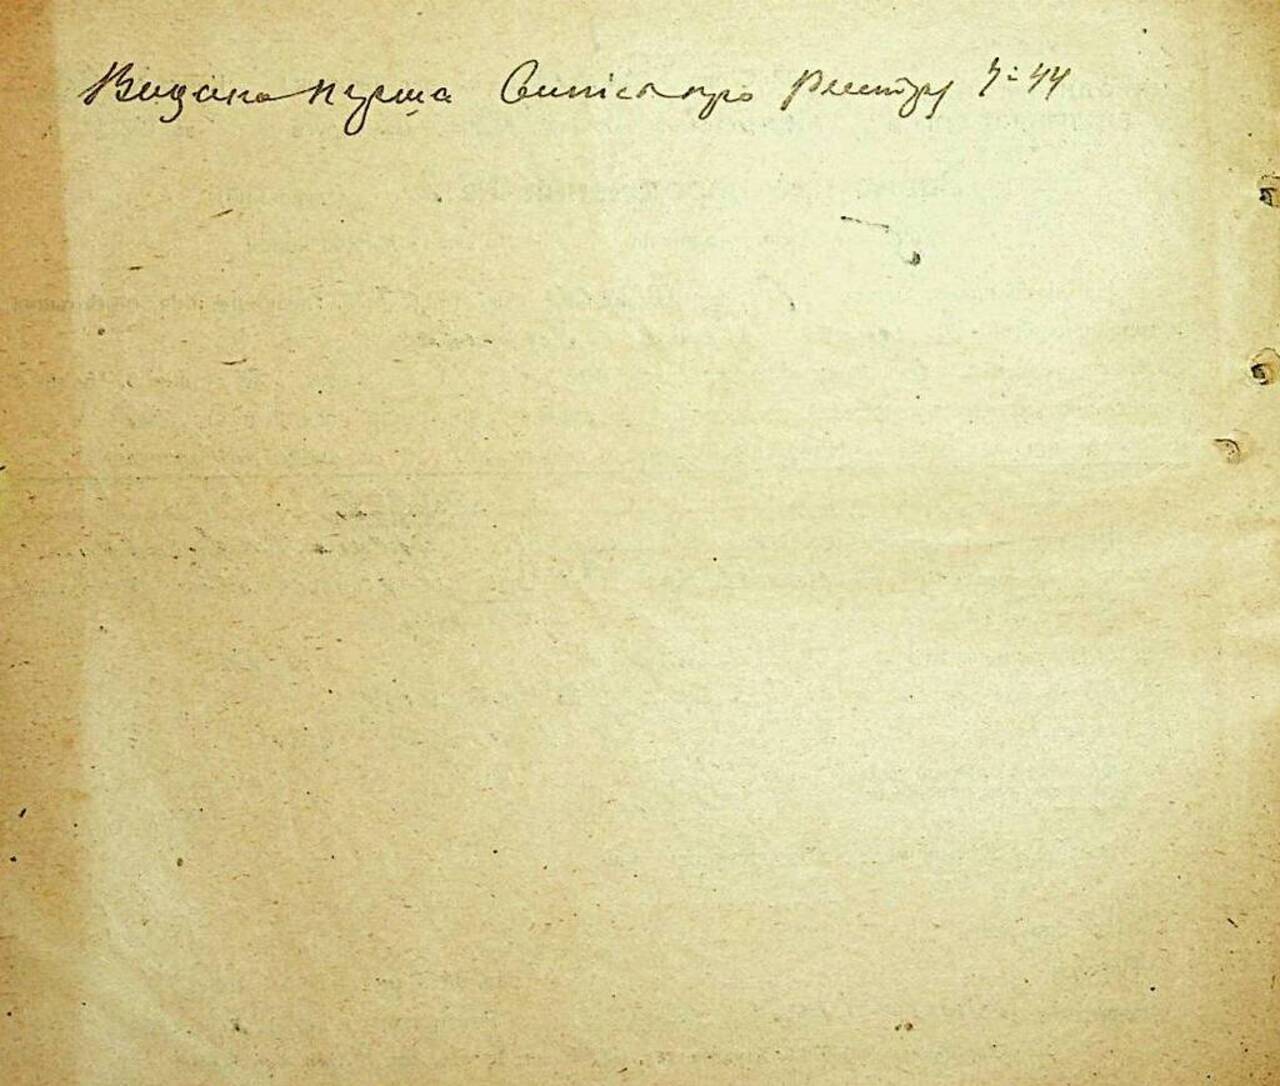 Видана перша Випіс про Реєстру Ч: 44